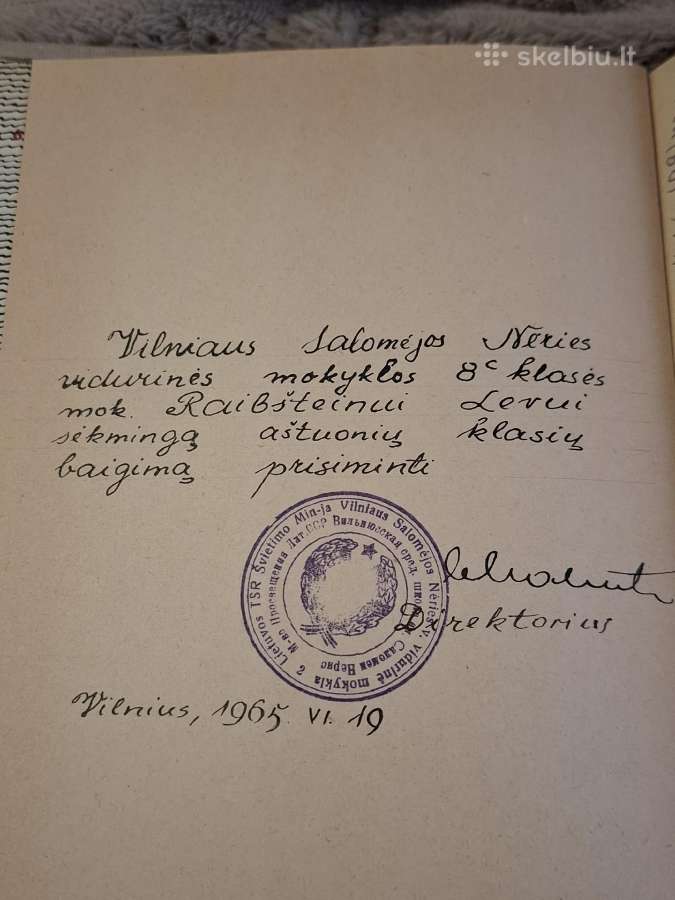 skelbiu.lt
Vilniaus Salomėjos Nėries
vidurinės mokyklos 8c klasės
mok. Raibšteinui Levui
sėkmingą aštuonių klasių
baigimą prisiminti
Lietuvos TSR Švietimo Min-ja Vilniaus Salomėjos Nėries v. vidurinė mokykla
М-во Просвещения Лит.ССР Вильнюсская сред. школа Саломеи Нерис
Direktorius
Vilnius, 1965. VI. 19